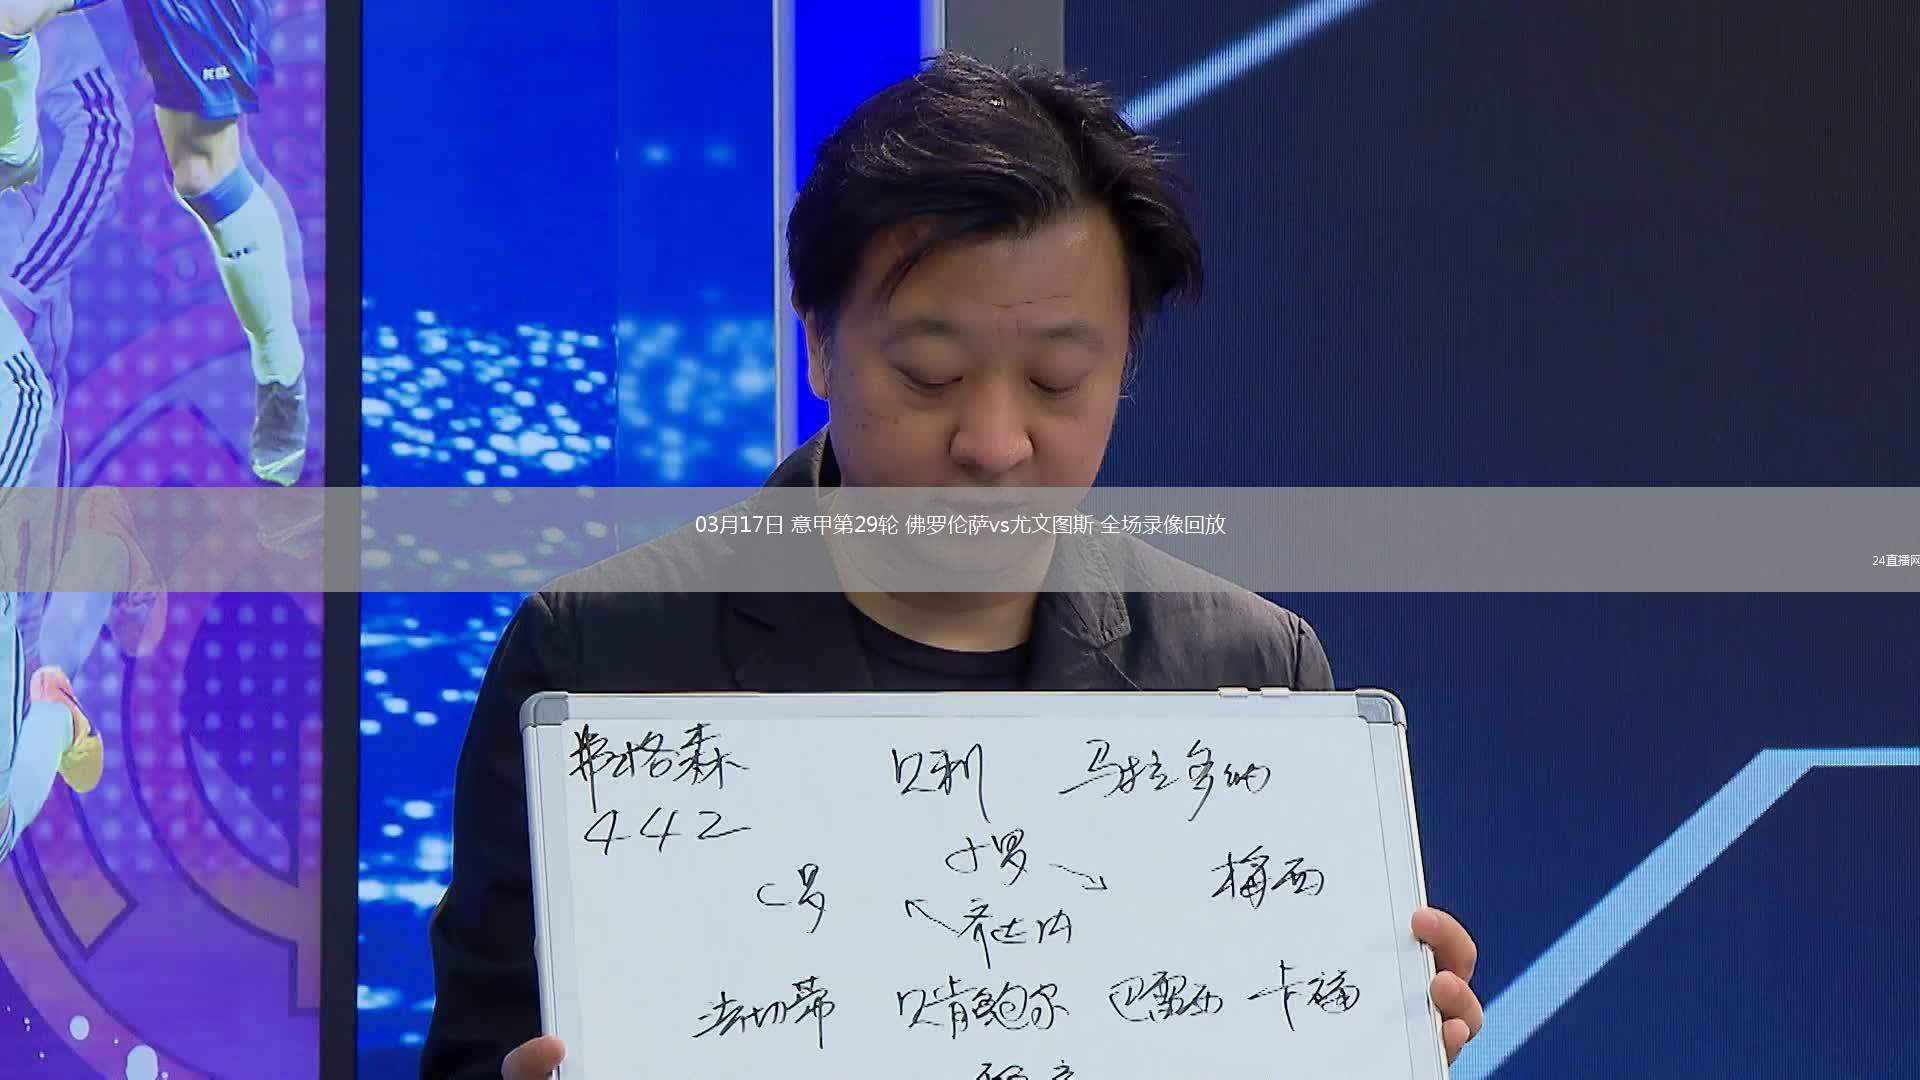 KEL
03月17日 意甲第29轮 佛罗伦萨vs尤文图斯 全场录像回放
24直播网
弗格森 贝利 马拉多纳
442
小罗
C罗 梅西
齐达内
法切蒂 贝肯鲍尔 巴雷西 卡福